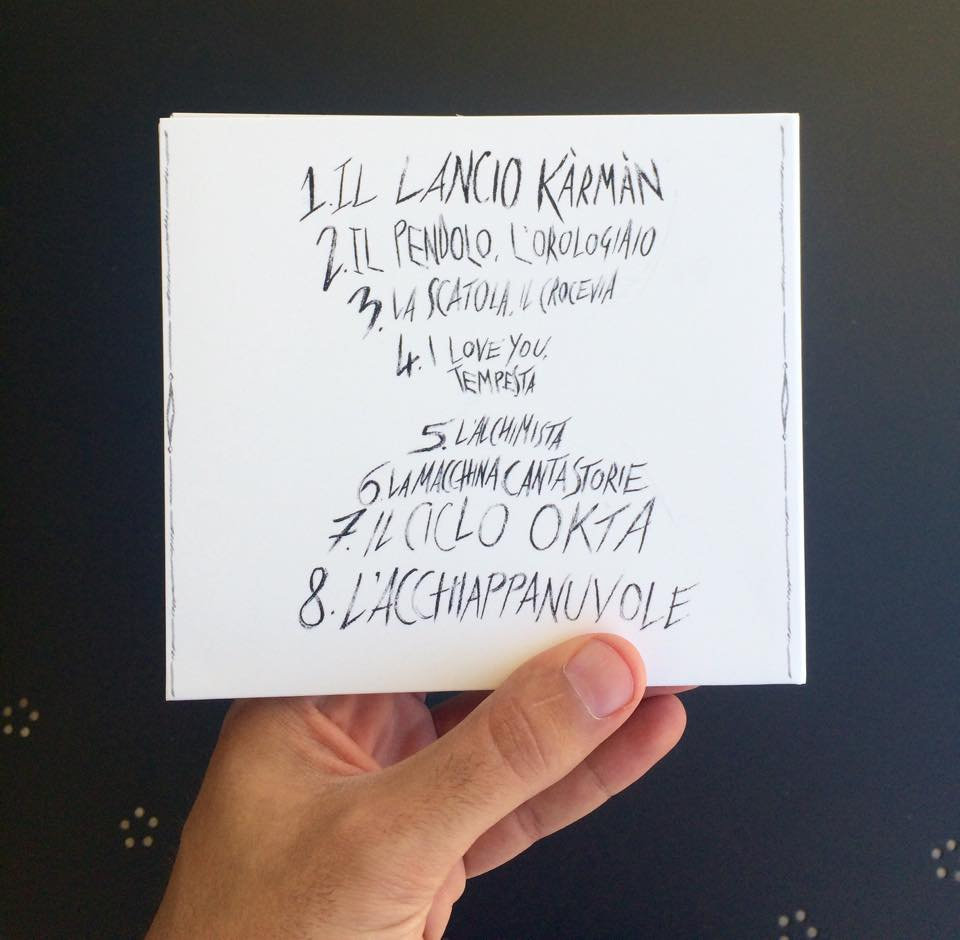 1. IL LANCIO KÀRMÀN
2. IL PENDOLO, L'OROLOGIAIO
3. LA SCATOLA, IL CROCEVIA
4. I LOVE YOU,
TEMPESTA
5. L'ALCHIMISTA
6. LA MACCHINA CANTASTORIE
7. IL CICLO OKTA
8. L'ACCHIAPPANUVOLE